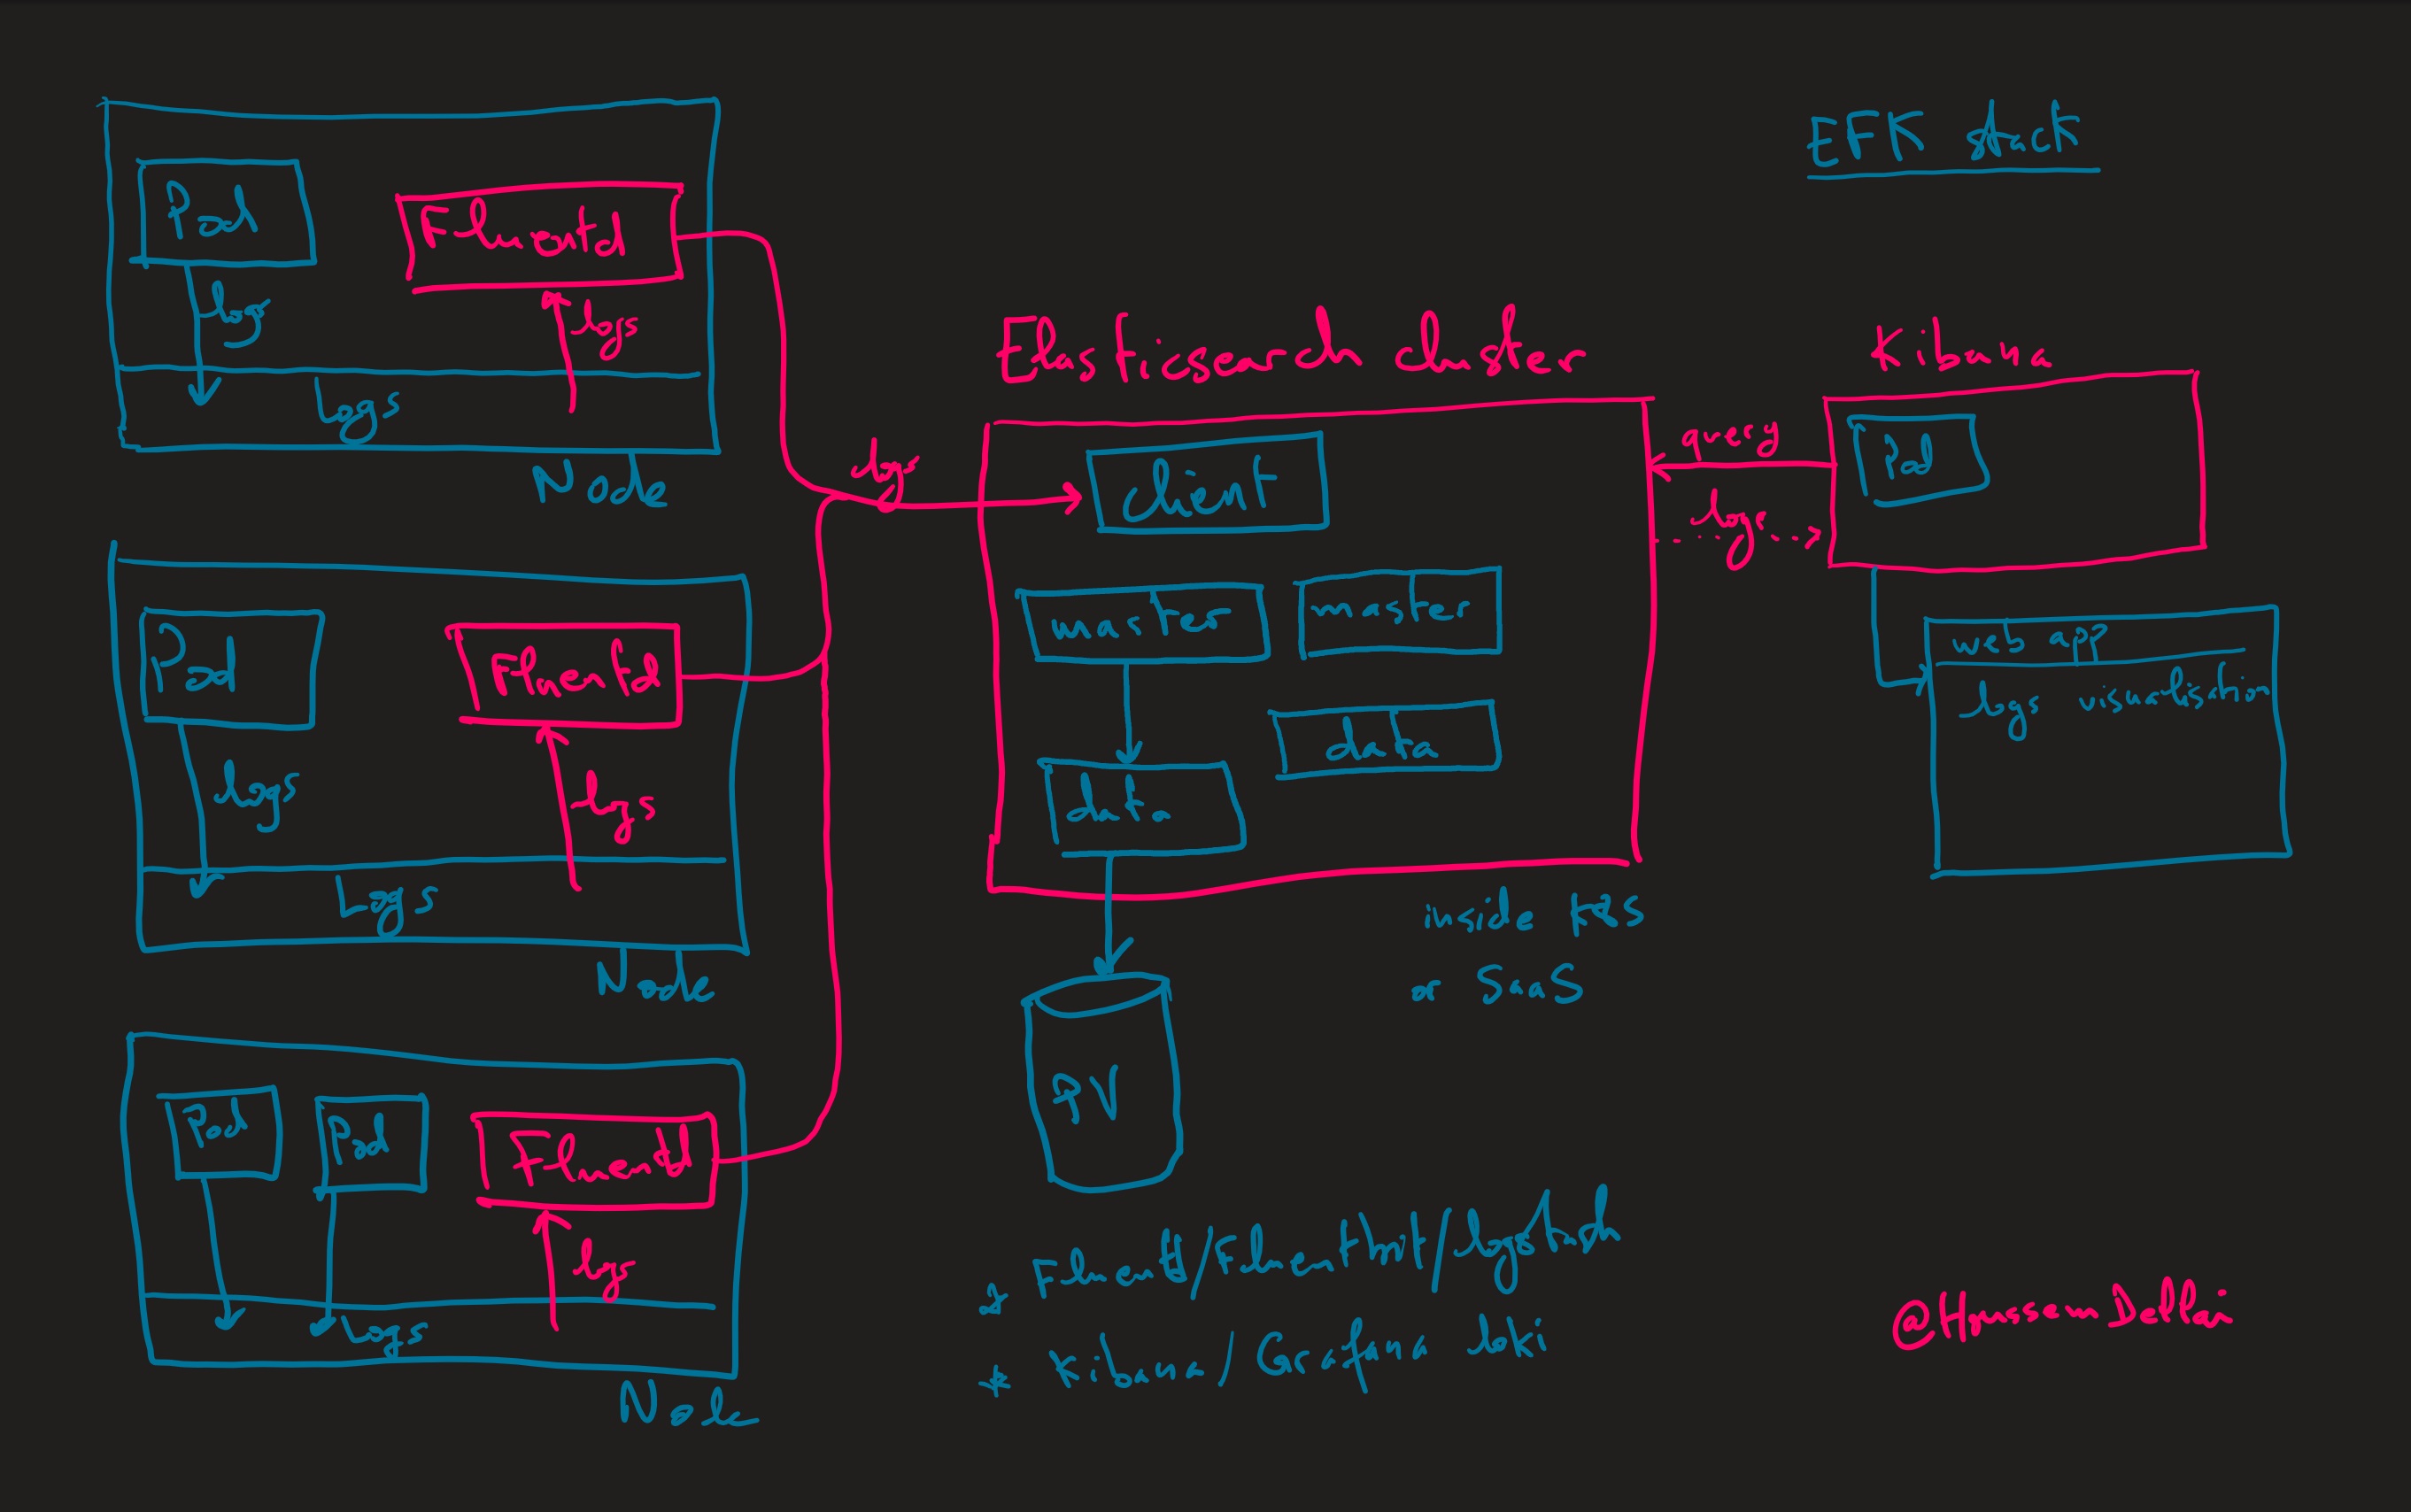 EFK stack
Pod
Fluentd
logs
logs
Logs
Node
Pod
Fluentd
logs
logs
Logs
Node
Pod
Pod
Fluentd
logs
Logs
Node
logs
Elasticsearch cluster
client
master
master
data
data
PV
inside K8S
or SaaS
Kibana
Pod
query
logs
web app
logs visualisation
* Fluentd/Fluentbit/logstash
* Kibana/Grafana loki